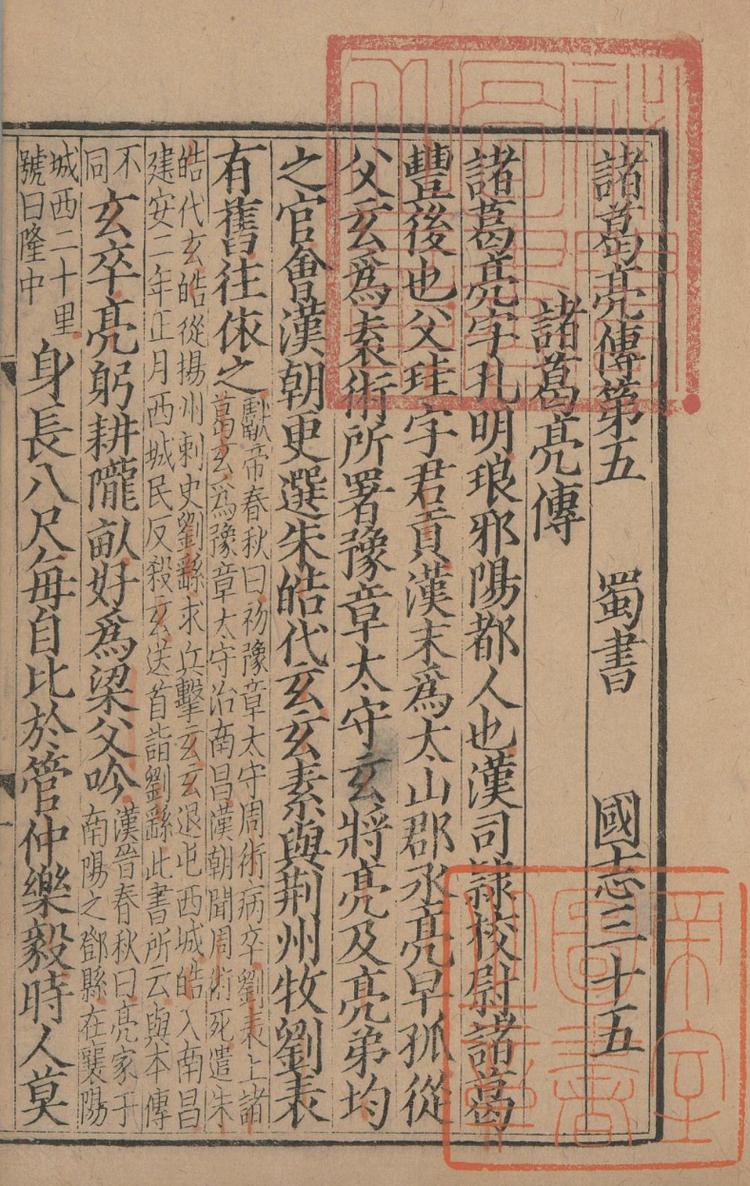 諸葛亮傳第五 蜀書 國志三十五
諸葛亮傳
諸葛亮字孔明琅邪陽都人也漢司隸校尉諸葛
豐後也父珪字君貢漢末爲太山郡丞亮早孤從
父玄爲袁術所署豫章太守玄將亮及亮弟均
之官會漢朝更選朱皓代玄玄素與荆州牧劉表
有舊往依之
獻帝春秋曰初豫章太守周術病卒劉表上諸
葛玄爲豫章太守治南昌漢朝聞周術死遣朱
皓代玄皓從揚州刺史劉繇求兵擊玄玄退屯西城皓入南昌
建安二年正月西城民反殺玄送首詣劉繇此書所云與本傳
不
同
玄卒亮躬耕隴畝好爲梁父吟
漢晉春秋曰亮家于
南陽之鄧縣在襄陽
城西二十里
號曰隆中
身長八尺每自比於管仲樂毅時人莫
帝室圖書之章